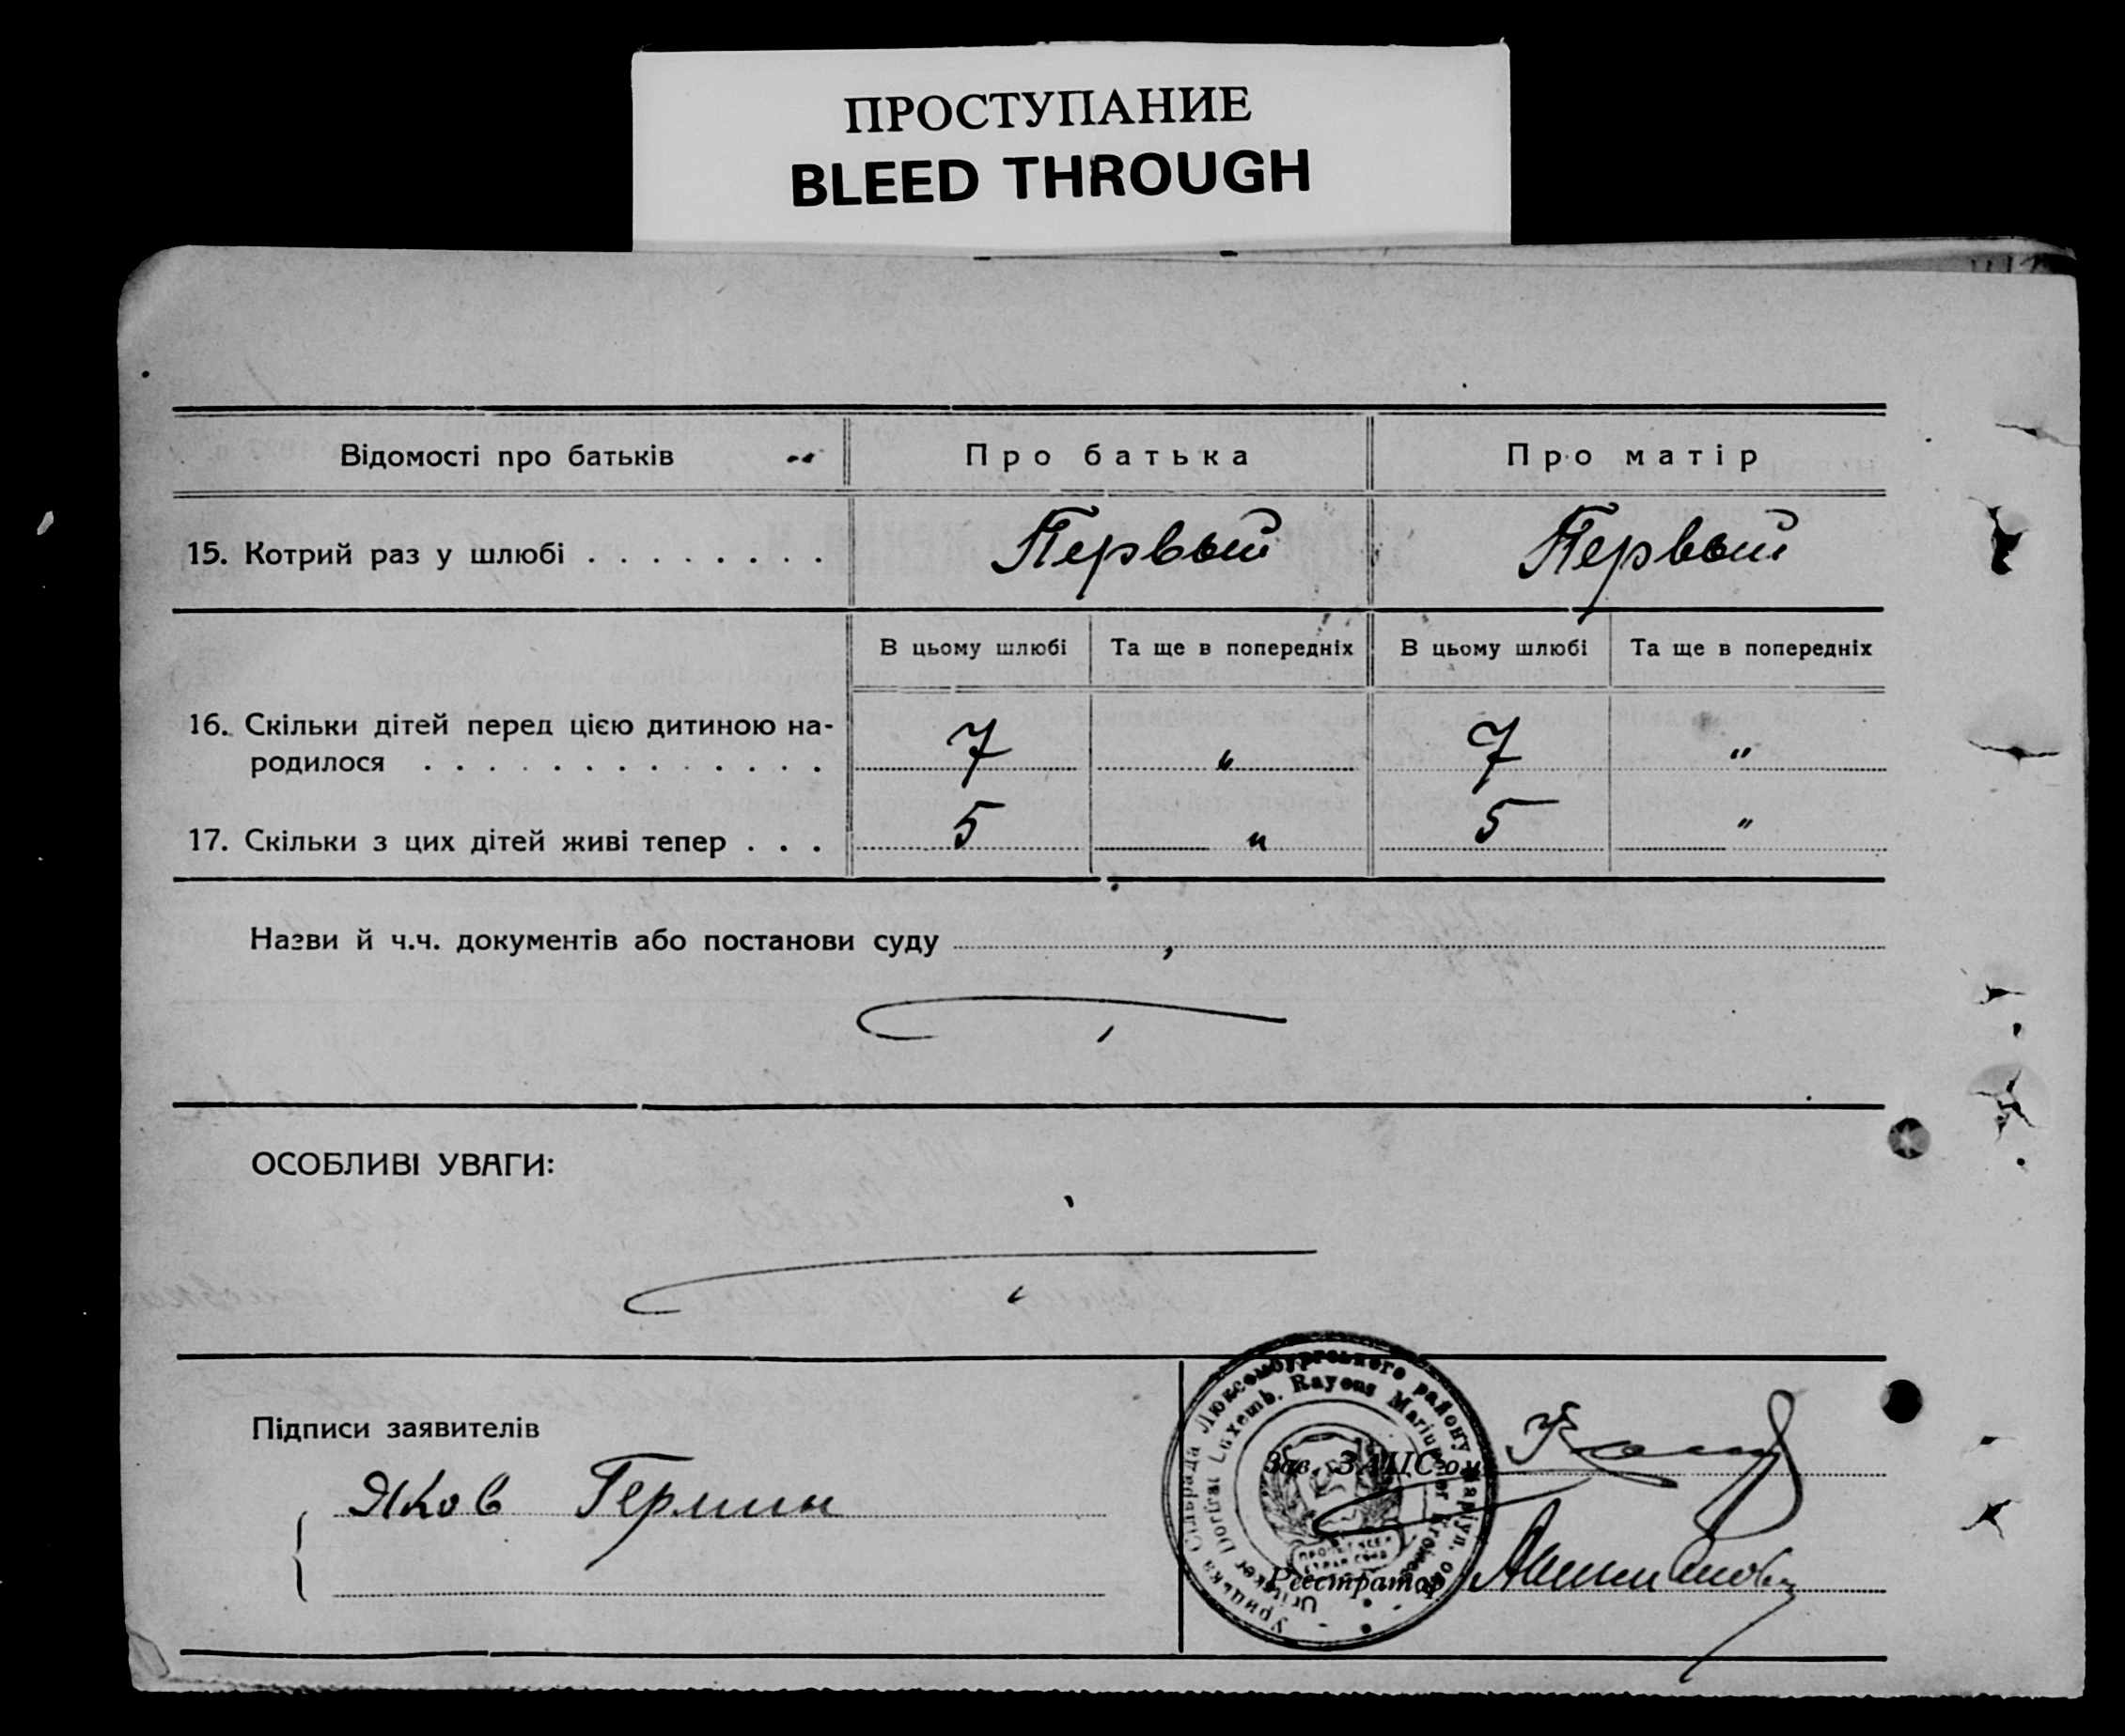 ПРОСТУПАНИЕ
BLEED THROUGH
Відомості про батьків
Про батька
Про матір
15. Котрий раз у шлюбі . . . . . . . .
Первый
Первый
В цьому шлюбі
Та ще в попередніх
В цьому шлюбі
Та ще в попередніх
16. Скільки дітей перед цією дитиною на-
родилося . . . . . . . . . . . . . .
7
"
7
"
17. Скільки з цих дітей живі тепер . . .
5
"
5
"
Назви й ч.ч. документів або постанови суду
ОСОБЛИВІ УВАГИ:
Підписи заявителів
Яков Герман
Зав. ЗАЦС'ом
Реєстратор
Урицька Сільрада Люксембургського району Маріуп. окр.
Uritzker Dorfrat Luxemb. Rayons Mariupoler Kreises